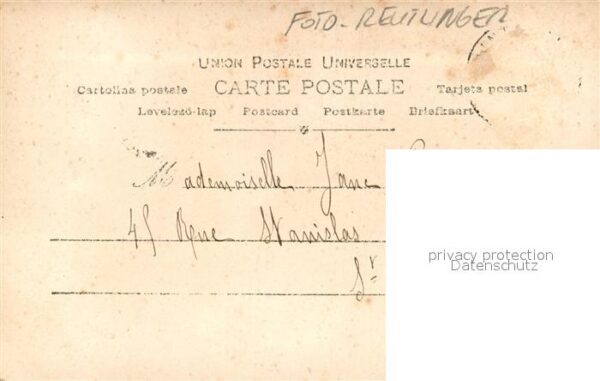 FOTO-REUTLINGER
UNION POSTALE UNIVERSELLE
Cartolina postale CARTE POSTALE Tarjeta postal
Levelező-lap Postcard Postkarte Briefkaart
Mademoiselle Jane
45 Rue Stanislas
St
privacy protection
Datenschutz